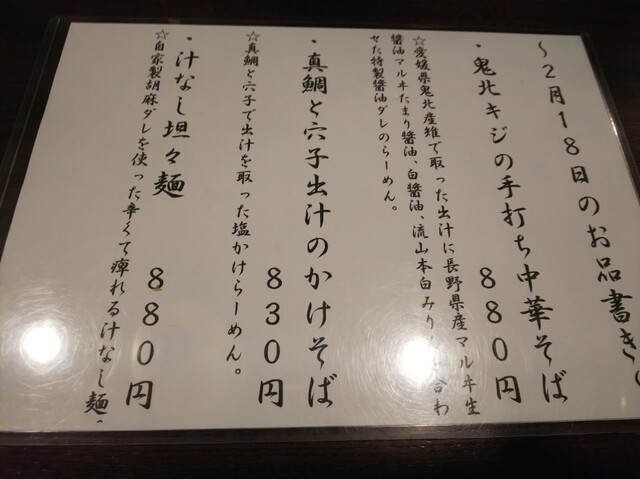 〜2月18日のお品書き〜
・鬼北キジの手打ち中華そば
880円
☆愛媛県鬼北産雉で取った出汁に長野県産マルヰ生
醤油マルヰたまり醤油、白醤油、流山本白みりん 合わ
せた特製醤油ダレのらーめん。
・真鯛と穴子出汁のかけそば
830円
☆真鯛と穴子で出汁を取った塩かけらーめん。
・汁なし坦々麺
880円
☆自家製胡麻ダレを使った辛くて痺れる汁なし麺。